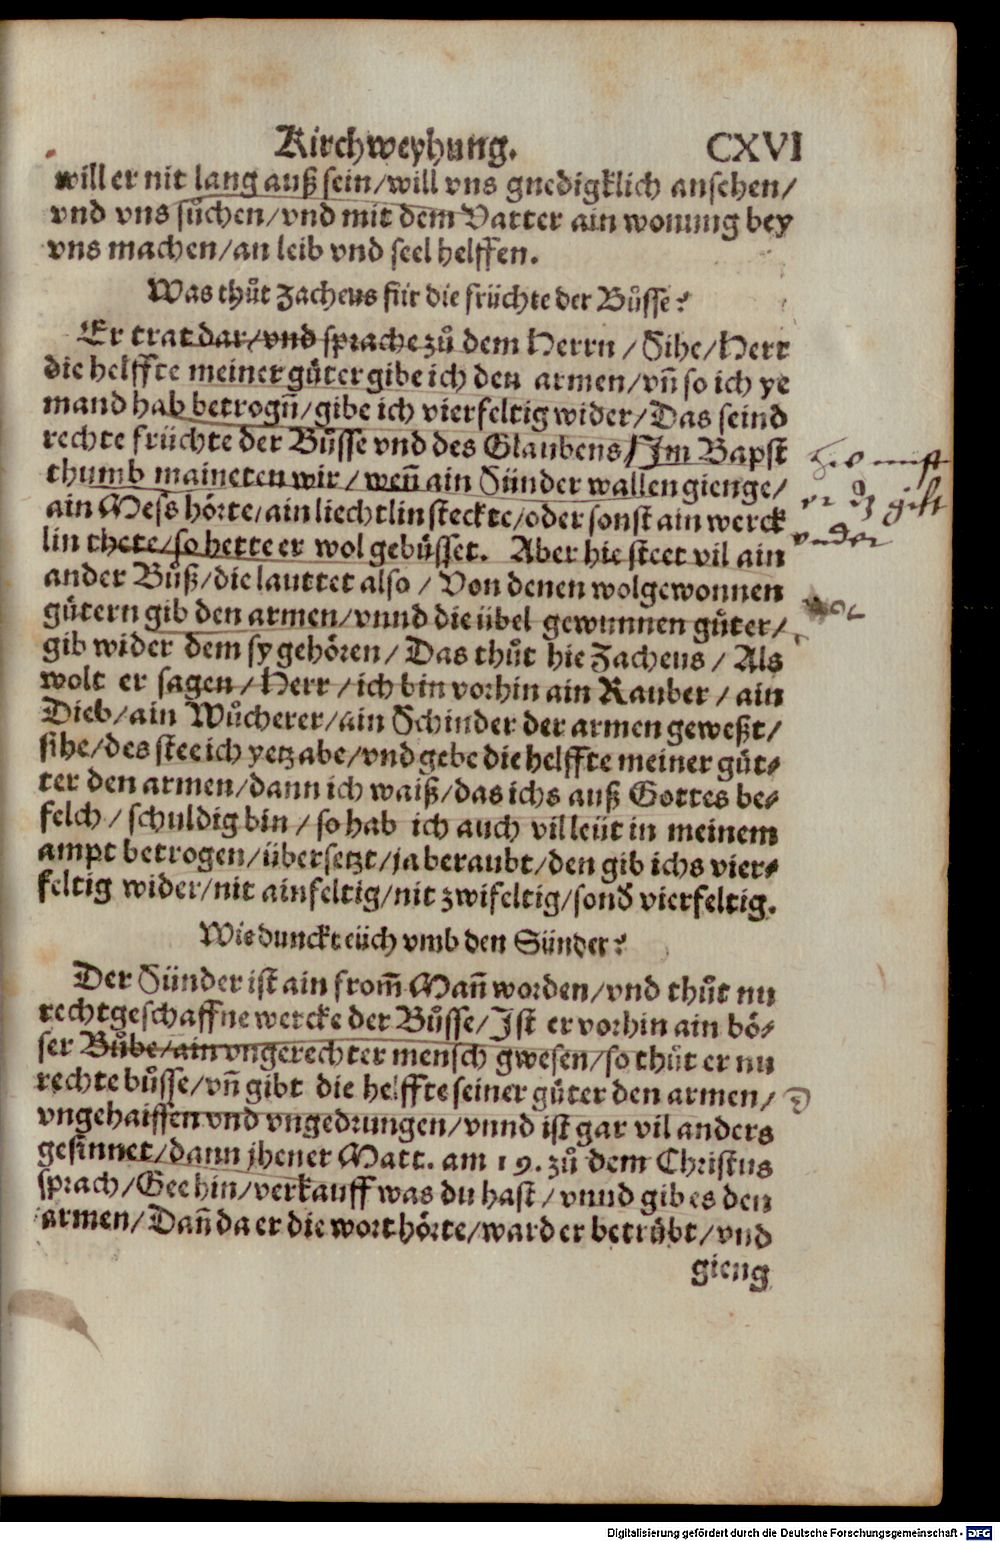 Kirchweyhung. CXVI
will er nit lang auß sein/will vns gnedigklich ansehen/
vnd vns sůchen/vnd mit dem Vatter ain wonung bey
vns machen/an leib vnd seel helffen.
Was thůt Zacheus für die früchte der Bůsse?
Er trat dar/vnd sprache zů dem Herrn / Sihe/Herr
die helffte meiner gůter gibe ich den armen/vñ so ich ye
mand hab betrogñ/gibe ich vierfeltig wider/Das seind
rechte früchte der Bůsse vnd des Glaubens/Im Bapst
thumb maineten wir/weñ ain Sünder wallen gienge/
ain Mess hörte/ain liechtlin steckte/oder sonst ain werck
lin thete/so hette er wol gebůsset. Aber hie steet vil ain
ander Bůß/die lauttet also / Von denen wolgewonnen
gůtern gib den armen/vnnd die übel gewunnen gůter/
gib wider dem sy gehören/ Das thůt hie Zacheus / Als
wolt er sagen/Herr/ich bin vorhin ain Rauber / ain
Dieb/ain Wůcherer/ain Schinder der armen geweßt/
sihe/des stee ich yetz abe/vnd gebe die helffte meiner gůt⸗
ter den armen/dann ich waiß/das ichs auß Gottes be⸗
felch / schuldig bin / so hab ich auch vil leüt in meinem
ampt betrogen/übersetzt/ja beraubt/den gib ichs vier⸗
feltig wider/nit ainfeltig/nit zwifeltig/sond̃ vierfeltig.
Wie dunckt eüch vmb den Sünder?
Der Sünder ist ain from̃ Mañ worden/vnd thůt nu
rechtgeschaffne wercke der Bůsse/Ist er vorhin ain bö⸗
ser Bůbe/ain vngerechter mensch gwesen/so thůt er nu
rechte bůsse/vñ gibt die helffte seiner gůter den armen/
vngehaissen vnd vngedrungen/vnnd ist gar vil anders
gesinnet/dann jhener Matt. am 19. zů dem Christus
sprach/Gee hin/verkauff was du hast / vnnd gib es den
armen/Dañ da er die wort hörte/ward er betrübt/vnd
gieng
Digitalisierung gefördert durch die Deutsche Forschungsgemeinschaft - DFG